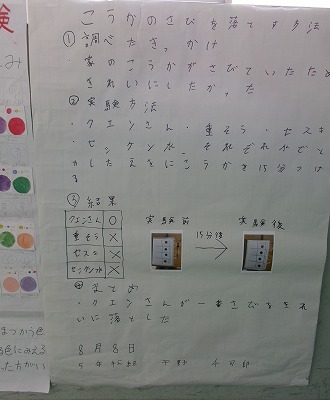 こうかのさびを落とす方法
① 調べたきっかけ
・家のこうかがさびていたため
きれいにしたかった
② 実験方法
・クエンさん・重そう・セスキ
・センケンれ、それぞれがとか
したえきにこうかを15分つけ
る
③ 結果
クエンさん ○
重そう ×
セスキ ×
実験前
15分後
実験後
④ まとめ
・クエンさんが一番さびをきれ
いに落とした
8月8日
験
まつかう色
る色にみえる
った方がい